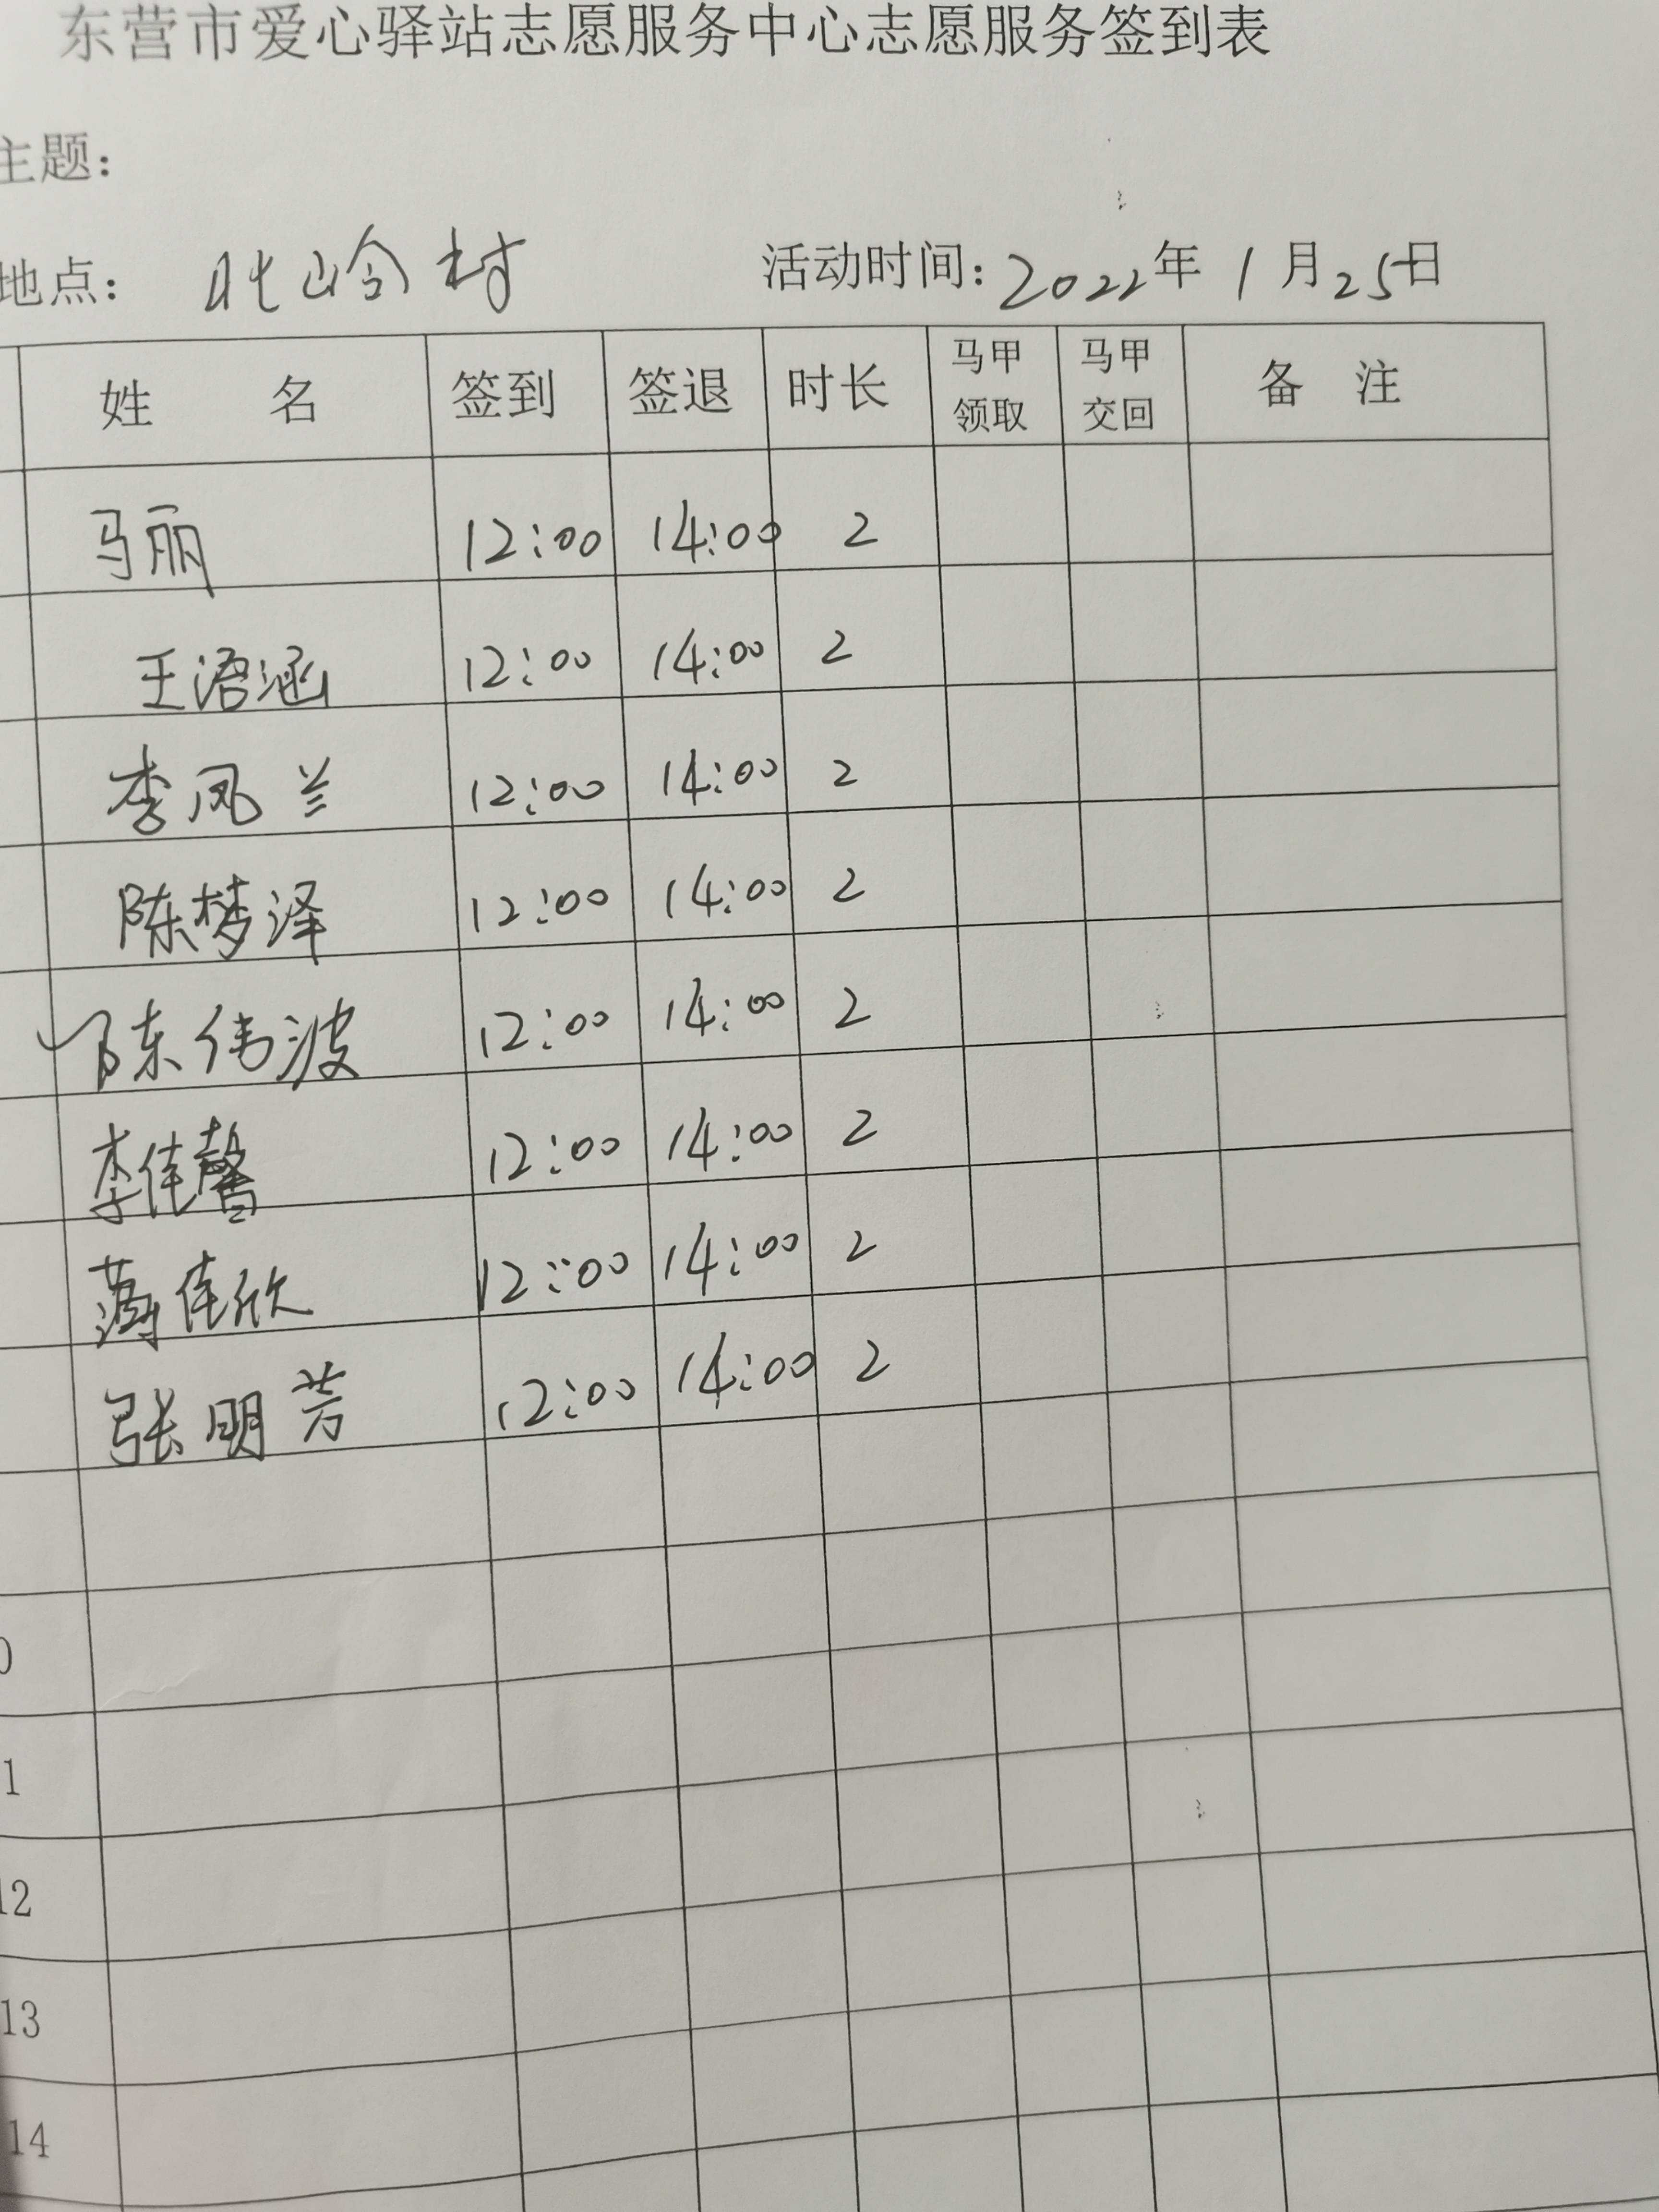 东营市爱心驿站志愿服务中心志愿服务签到表
主题：
地点： 北岭村 活动时间：2022年1月25日
姓 名 签到 签退 时长 马甲领取 马甲交回 备 注
马丽 12:00 14:00 2
王浯涵 12:00 14:00 2
李凤兰 12:00 14:00 2
陈梦泽 12:00 14:00 2
陈伟波 12:00 14:00 2
李佳馨 12:00 14:00 2
佳欣 12:00 14:00 2
张明芳 12:00 14:00 2
0
1
12
13
14